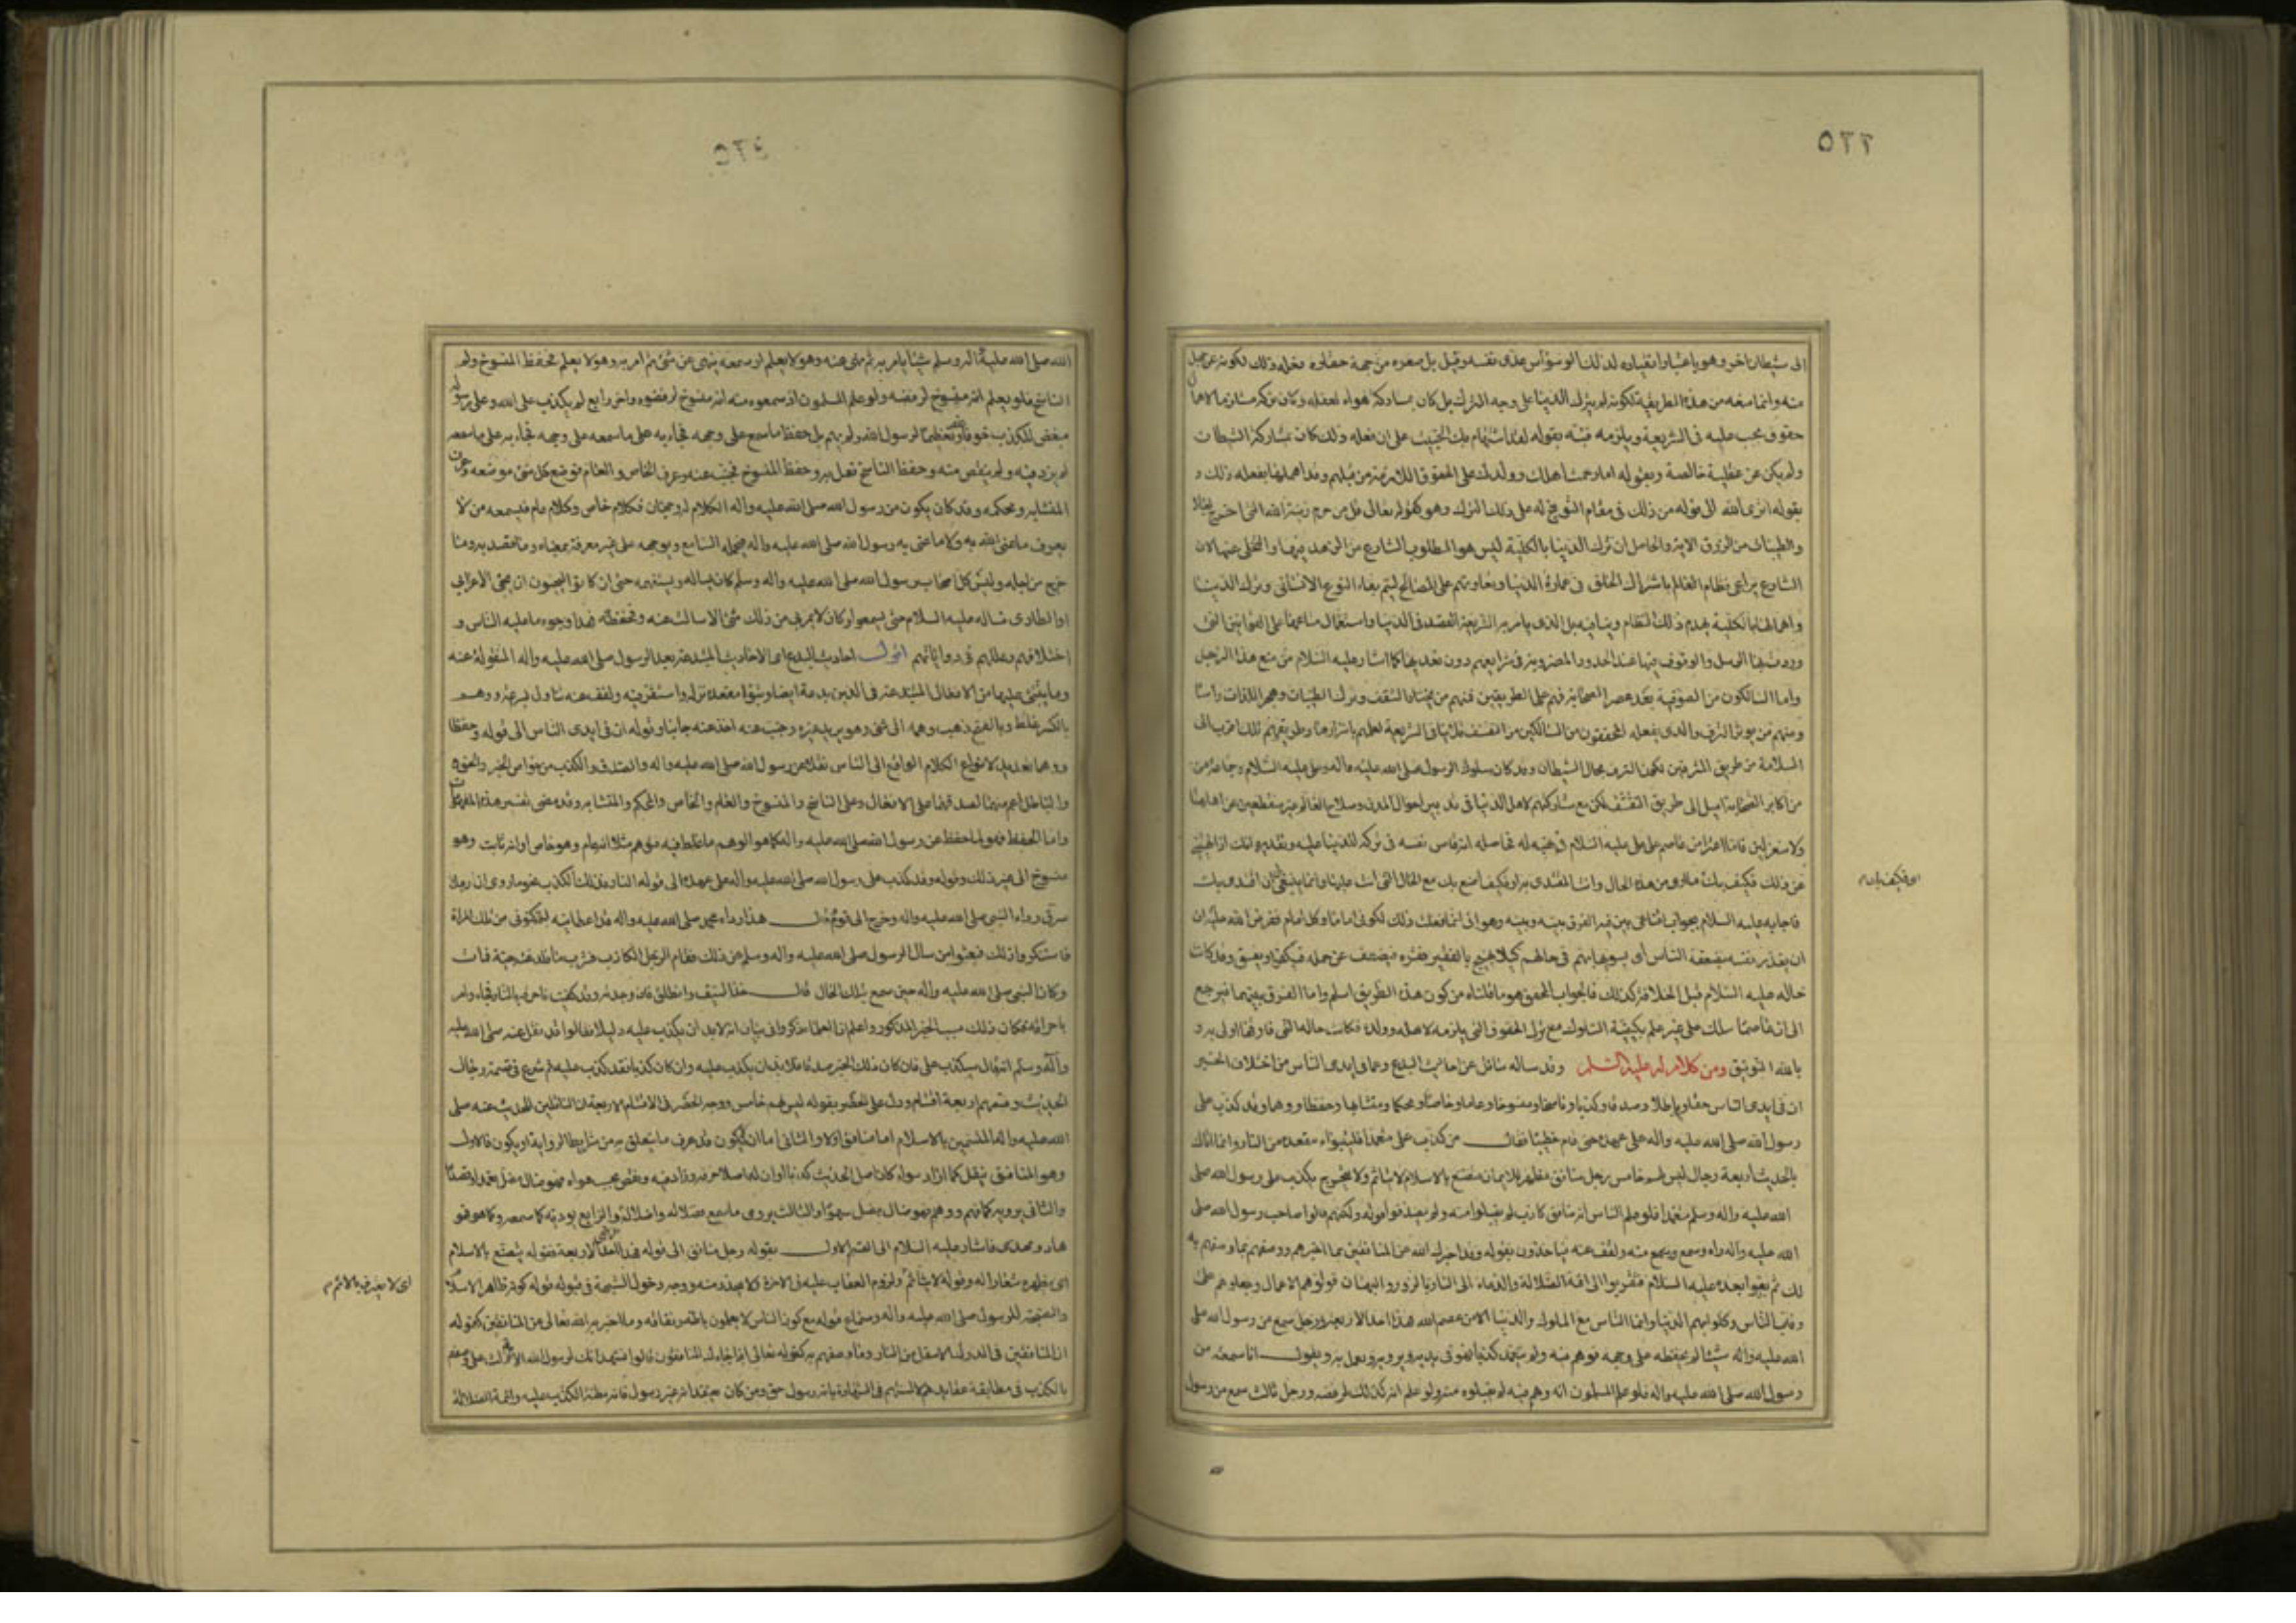 ٥٢٣
الى شيطان اخر وهو باعتبار انقياده لذلك الوسواس عدى نفسه وقيل بل صغره من جهة حقارة فعله وذلك لكونه عن جهل
منه وانما منعه من هذه الطريقة لكونه لم يترك الدنيا على وجه الترك بل كان بمشاركة هواه لعقله وكان تركه مستلزما لاهمال
حقوق يجب عليه في الشريعة ويلزمه فنبه بقوله لقد استهام بك الخبيث على ان فعله ذلك كان بمشاركة الشيطان
ولم يكن عن عقلية خالصة وبقوله اما رحمت اهلك وولدك على الحقوق اللازمة من قبلهم وقد اهملها بفعله ذلك و
بقوله اترى الله الى قوله من ذلك في مقام التوبيخ له على ذلك الترك وهو كقوله تعالى قل من حرم زينة الله التي اخرج لعباده
والطيبات من الرزق الاية والحاصل ان ترك الدنيا بالكلية ليس هو المطلوب الشارع من الزهد فيها والتخلى عنها لان
الشارع يراعي نظام العالم باشتراك الخلق في عمارة الدنيا وتعاونهم على المصالح ليتم بقاء النوع الانساني وترك الدنيا
واهمالها بالكلية يهدم ذلك النظام وينافيه بل الذي يامر به الشريعة القصد في الدنيا واستعمال متاعها على القوانين التي
وردت بها الرسل والوقوف فيها عند الحدود المضروبة في شرايعهم دون تعديها كما اشار عليه السلام من منع هذا الرجل
واما السالكون من الصوفية بعد عصر الصحابة فهم على الطريقين فمنهم من يختار التقشف وترك الطيبات وهجر اللذات راسا
ومنهم من يوثر الترف والذي يفعله المحققون من السالكين من التقشف فلا ينافي الشريعة لعلمهم باسرارها وطريقتهم تلك اقرب الى
السلامة من طريق المترفين لكون الترف مجال الشيطان وقد كان سلوك الرسول صلى الله عليه واله وعلي عليه السلام وجماعة من
من اكابر الصحابة اميل الى طريق التقشف لكن مع مشاركتهم لاهل الدنيا في تدبير احوال المدن وصلاح العالم غير منقطعين عن اهلها
ولا منعزلين فاما اعتراض عاصم على علي عليه السلام في نهيه له فحاصله انه قاس نفسه في تركه للدنيا عليه وتقديره انك اذا نهيتني
عن ذلك فكيف بك مادرى من هذه الحال وانت المقتدى به او كيف اصنع بك مع الحال التي انت عليها وانما ينبغي لي ان اقتدى بك
فاجابه عليه السلام بجواب اقناعي بين فيه الفرق بينه وبينه وهو اني انما فعلت ذلك لكوني اماما وكل امام فقد فرض الله عليه ان
ان يقدر نفسه بضعفة الناس اى يسويها بهم في حالهم كيلا يهيج بالفقير فقره فيضعف عن حمله فيكفر او يفسق وقد كان
حاله عليه السلام قبل الخلافة كذلك فالجواب المحقق هو ما قلناه من كون هذه الطريق اسلم واما الفرق بينهما فيرجع
الى ان عاصما سلك على غير علم بكيفية السلوك مع ترك الحقوق التي يلزمه لاهله وولده فكانت حاله التي فارقها اولى به و
بالله التوفيق ومن كلام له عليه السلم وقد ساله سائل عن احاديث البدع وعما في ايدى الناس من اختلاف الخبر
ان في ايدى الناس حقا وباطلا وصدقا وكذبا وناسخا ومنسوخا وعاما وخاصا ومحكما ومتشابها وحفظا ووهما وقد كذب على
رسول الله صلى الله عليه واله على عهده حتى قام خطيبا فقال من كذب علي متعمدا فليتبوأ مقعده من النار وانما اتاك
بالحديث اربعة رجال ليس لهم خامس رجل منافق مظهر للايمان متصنع بالاسلام لا يتاثم ولا يتحرج يكذب على رسول الله صلى
الله عليه واله وسلم متعمدا فلو علم الناس انه منافق كاذب لم يقبلوا منه ولم يصدقوا قوله ولكنهم قالوا صاحب رسول الله صلى
الله عليه واله راه وسمع منه ولقف عنه فياخذون بقوله وقد اخبرك الله عن المنافقين بما اخبرهم ووصفهم بما وصفهم به
لك ثم بقوا بعده عليه السلام فتقربوا الى ائمة الضلالة والدعاة الى النار بالزور والبهتان فولوهم الاعمال وجعلوهم على
رقاب الناس وكلوا بهم الدنيا وانما الناس مع الملوك والدنيا الا من عصم الله فهذا احد الاربعة ورجل سمع من رسول الله صلى
الله عليه واله شيئا لم يحفظه على وجهه فوهم فيه ولم يتعمد كذبا فهو في يديه ويرويه ويعمل به ويقول انا سمعته من
رسول الله صلى الله عليه واله فلو علم المسلمون انه وهم فيه لم يقبلوه منه ولو علم انه كذلك لرفضه ورجل ثالث سمع من رسول
٥٢٤
الله صلى الله عليه واله وسلم شيئا يامر به ثم نهى عنه وهو لا يعلم او سمعه ينهى عن شئ ثم امر به وهو لا يعلم فحفظ المنسوخ ولم
الناسخ فلو يعلم انه منسوخ لرفضه ولو علم المسلمون اذ سمعوه منه انه منسوخ لرفضوه واخر رابع لم يكذب على الله وعلى رسوله
مبغض للكذب خوفا وتعظيما لرسول الله ولم يهم بل حفظ ما سمع على وجهه فجاء به على ما سمعه على وجهه فجاء به على ما سمعه
لم يزد فيه ولم ينقص منه وحفظ الناسخ فعمل به وحفظ المنسوخ فجنب عنه وعرف الخاص والعام فوضع كل شئ موضعه وعرف
المتشابه ومحكمه وقد كان يكون من رسول الله صلى الله عليه واله الكلام له وجهان فكلام خاص وكلام عام فيسمعه من لا
يعرف ما عنى الله به ولا ما عنى به رسول الله صلى الله عليه واله فيحمله السامع ويوجهه على غير معرفة بمعناه وما قصد به وما
خرج من اجله وليس كل اصحاب رسول الله صلى الله عليه واله وسلم كان يساله ويستفهمه حتى ان كانوا ليحبون ان يجئ الاعرابي
او الطارى فساله عليه السلام حتى يسمعوا وكان لا يمر بي من ذلك شئ الا سالت عنه وحفظته فهذا وجوه ما عليه الناس و
اختلافهم وعللهم في رواياتهم اقول احاديث البدع اى الاحاديث المبتدعة بعد الرسول صلى الله عليه واله المنقولة عنه
وما يبتنى عليها من الافعال المبتدعة في الدين بدعة ايضا وتبوأ مقعده نزله واستقر فيه ولقف عنه تناول بسرعة ووهم
بالكسر غلط وبالفتح ذهب وهمه الى شئ وهو يريد غيره وجنب عنه اخذ عنه جانبا وقوله ان في ايدى الناس الى قوله وحفظا
ووهما تعديد لانواع الكلام الواقع الى الناس نقلا عن رسول الله صلى الله عليه واله والصدق والكذب من خواص الخبر والحق
والباطل اعم منهما لصدقهما على الافعال وعلى الناسخ والمنسوخ والعام والخاص والمحكم والمتشابه وقد مضى تفسير هذه المفهومات
واما الحفظ فهو لما حفظ عن رسول الله صلى الله عليه واله كما هو الوهم ما غلط فيه فوهم مثلا انه عام وهو خاص او انه ثابت وهو
منسوخ الى غير ذلك وقوله وقد كذب على رسول الله صلى الله عليه واله على عهده الى قوله النار وذلك الكذب نحو ما روى ان رجلا
سرق رداء النبي صلى الله عليه واله وخرج الى قوم فقال هذا رداء محمد صلى الله عليه واله قد اعطانيه لتمكنوني من تلك المراة
فاستنكروا ذلك فبعثوا من سال الرسول صلى الله عليه واله وسلم عن ذلك فقام الرجل الكاذب فشرب ماء فلدغته حية فمات
وكان النبي صلى الله عليه واله حين سمع بتلك الحال قال خذ السيف وانطلق فان وجدته وقد كفيت فاحرقه بالنار فجاء وامر
باحراقه فكان ذلك سبب الخبر المذكور واعلم ان العلماء ذكروا في بيان انه لابد ان يكذب عليه دليلا فقالوا قد نقل عنه صلى الله عليه
واله وسلم انه قال سيكذب علي فان كان ذلك الخبر صدقا فلابد ان يكذب عليه وان كان كذبا فقد كذب عليه ثم شرع في قسمة رجال
الحديث وقسمهم اربعة اقسام ودل على الحصر بقوله ليس لهم خامس ووجه الحصر في الاقسام الاربعة ان الناقلين للحديث عنه صلى
الله عليه واله المتسمين بالاسلام اما منافق اولا والثاني اما ان يكون قد عرف ما يتعلق به من شرايط الرواية او يكون فالاول
وهو المنافق ينقل كما اراد سواء كان اصل الحديث كذبا او ان له اصلا حرفه وزاد فيه ونقص بحسب هواه فهو ضال مضل تعمدا وقصدا
والثاني يرويه كما فهم ووهم فهو ضال مضل سهوا والثالث يروى ما سمع فضلاله واضلاله والرابع يوديه كما سمعه وكما هو فهو
هاد ومهدى فاشار عليه السلام الى القسم الاول بقوله رجل منافق الى قوله فهذا احد الاربعة فقوله يتصنع بالاسلام
اى يظهره شعارا له وقوله لا يتاثم ولزوم العقاب عليه في الاخرة فلا يحذر منه ووجه دخول الشبهة في قبوله قوله كونه ظاهر الاسلام
والصحبة للرسول صلى الله عليه واله وسماع قوله مع كون الناس لا يعلمون باطنه ونفاقه وما اخبر به الله تعالى عن المنافقين كقوله
ان المنافقين في الدرك الاسفل من النار وما وصفهم به كقوله تعالى اذا جاءك المنافقون قالوا نشهد انك لرسول الله الاية
بالكذب في مطابقة عقايدهم لالسنتهم في الشهادة بانه رسول حق ومن كان يعتقد انه غير رسول فانه مظنة الكذب عليه وائمة الضلالة
اى لا يعترف بالاثم